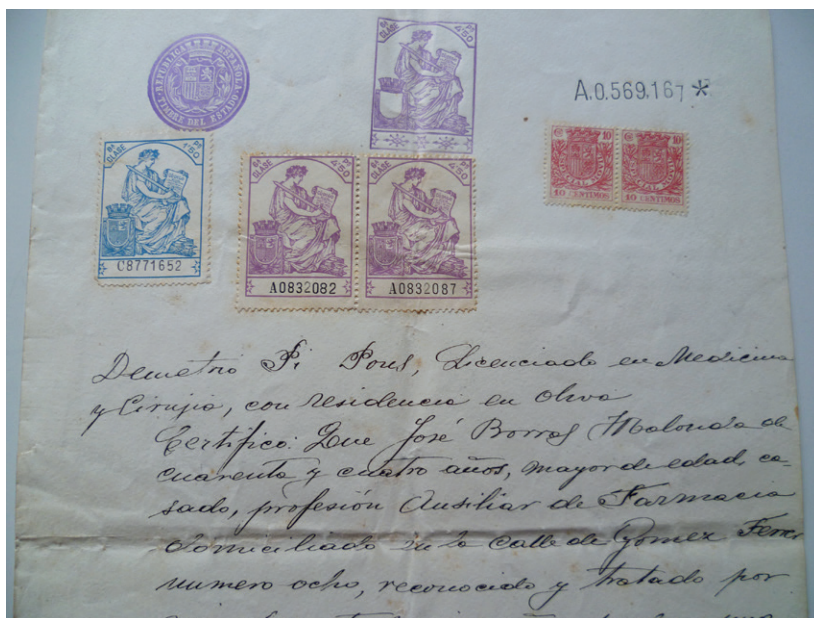 REPUBLICA ESPAÑOLA
TIMBRE DEL ESTADO
6ª CLASE
Pts 4'50
A.0.569.167 *
6ª CLASE
Pts 1'50
C8771652
6ª CLASE
Pts 4'50
A0832082
6ª CLASE
Pts 4'50
A0832087
10
10 CENTIMOS
10
10 CENTIMOS
Demetrio Pi Pons, Licenciado en Medicina
y Cirujia, con residencia en Oliva
Certifico: Que José Borras Malonda de
cuarenta y cuatro años, mayor de edad, ca-
sado, profesión Auxiliar de Farmacia
domiciliado en la calle de Gomez Ferrer
numero ocho, reconocido y tratado por